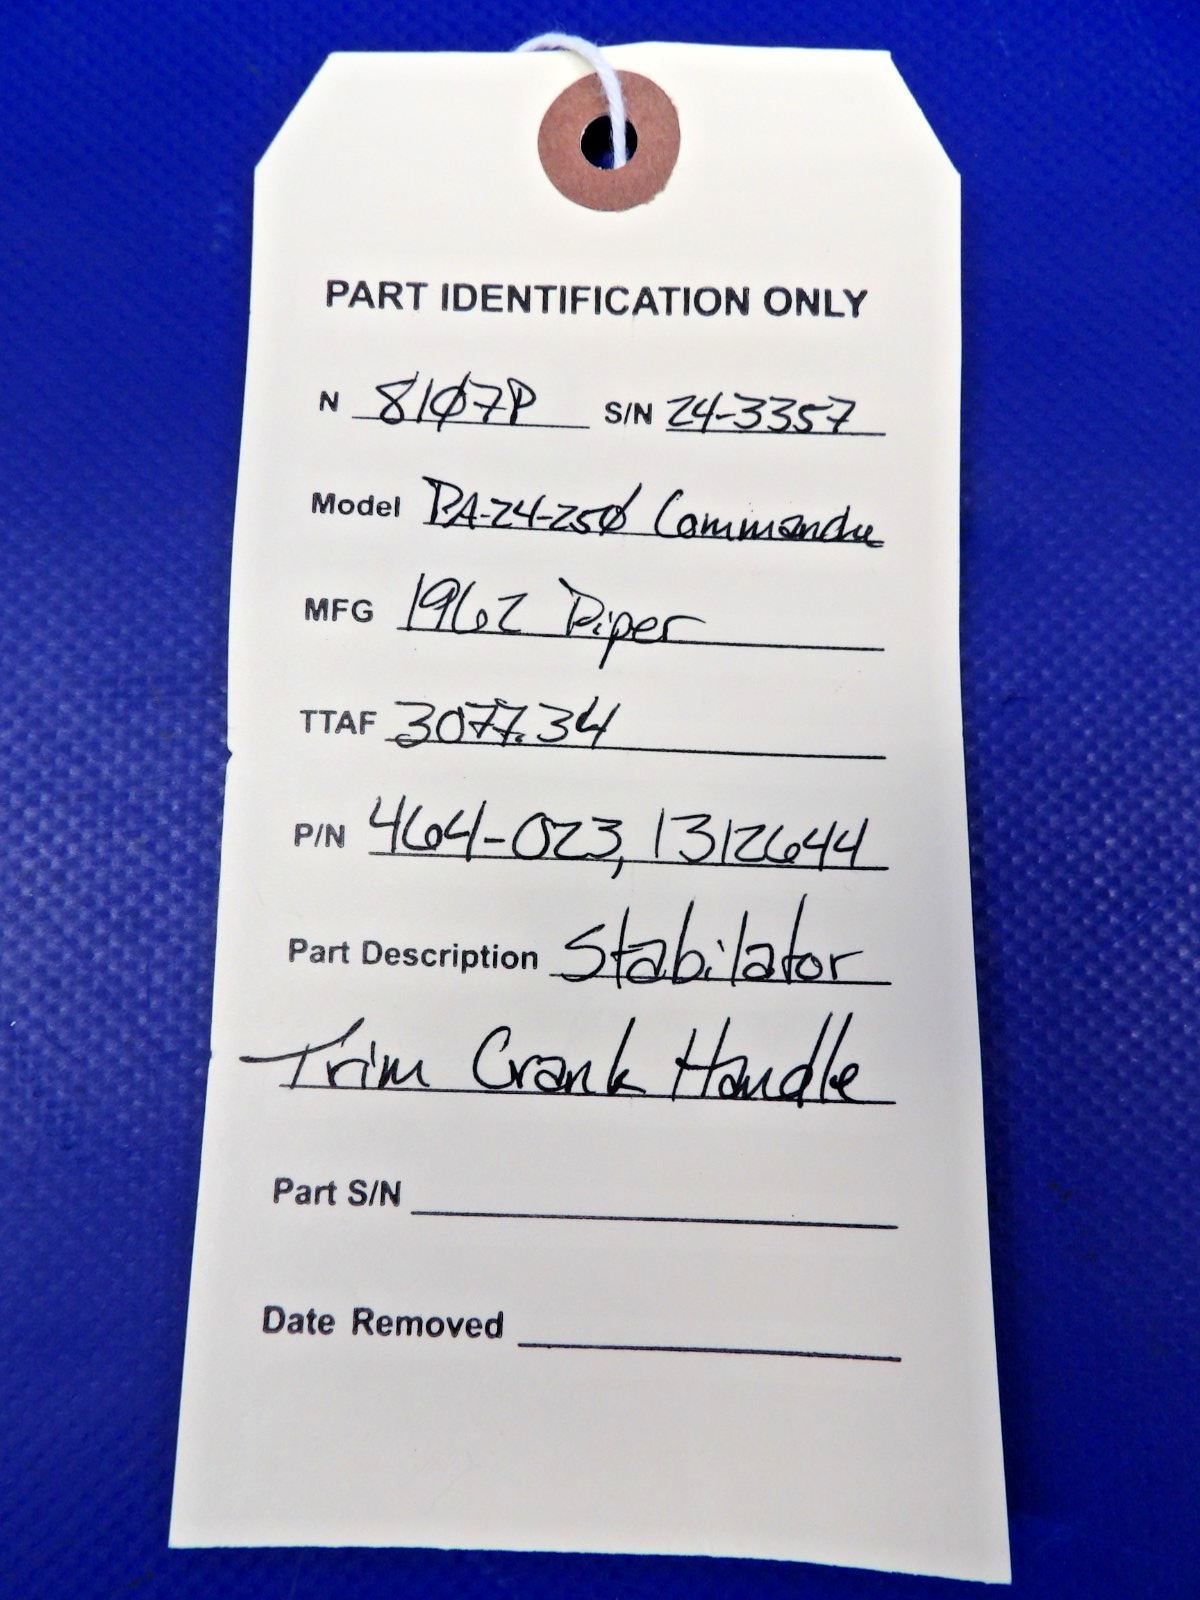 PART IDENTIFICATION ONLY
N 81Ø7P S/N 24-3357
Model PA-24-25Ø Commanche
MFG 1962 Piper
TTAF 3077.34
P/N 464-023, 1312644
Part Description Stabilator
Trim Crank Handle
Part S/N
Date Removed